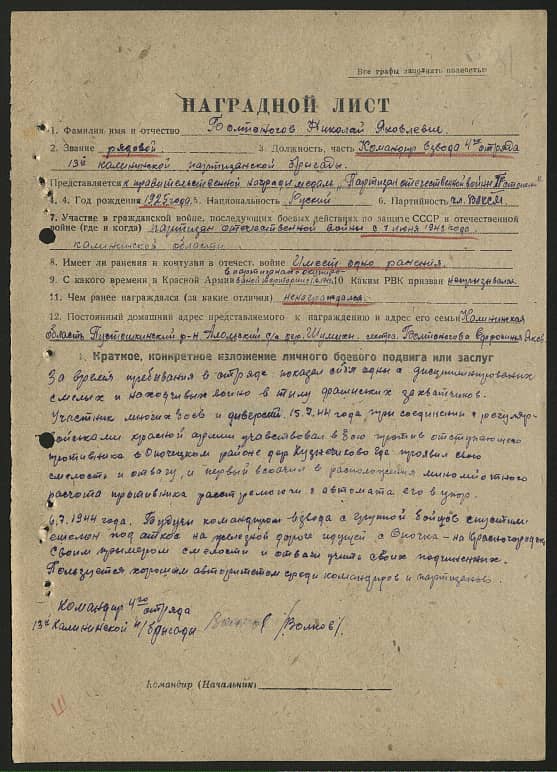 Все графы заполнять полностью
НАГРАДНОЙ ЛИСТ
1. Фамилия имя и отчество Болтоногов Николай Яковлевич.
2. Звание рядовой 3. Должность, часть Командир взвода 4го отряда
13й калининской партизанской бригады.
Представляется к правительственной награде медаль "Партизан отечественной войны
4. Год рождения 1925 года 5. Национальность Русский 6. Партийность чл. ВЛКСМ.
7. Участие в гражданской войне, последующих боевых действиях по защите СССР и отечественной
войне (где и когда) партизан отечественной войны с 1 июня 1942 года
калининской области.
8. Имеет ли ранения и контузии в отечест. войне Имеет одно ранения.
в партизанах
9. С какого времени в Красной Армии 10 Каким РВК призван непризывался
11. Чем ранее награждался (за какие отличия) ненаграждался.
12. Постоянный домашний адрес представляемого к награждению и адрес его семьи Калининская
область Пустошкинский р-н Алольский с/с дер. сестра Болтоногова
1. Краткое, конкретное изложение личного боевого подвига или заслуг
За время пребывания в отряде показал себя одним с дисциплинированных
смелых и находчивых воино в тылу захватчиков.
Участник многих боев и диверсий. 15.7.44 года при соединении с регуляр-
войсками красной армии учавствовал в бою против отступающего
противника в Опочецком районе дер где проявил свою
смелость и отвагу, и первый вскочил в расположения минометного
расчета противника расстрелю с автомата его в упор.
6.7.1944 года. Будучи командиром взвода с группой бойцов спустили
эшелон под откос на железной дороге идущей с Опочка – на Красногородск
Своим примером смелости и отваги учить своих подчиненных.
Пользуется хорошим авторитетом среди командиров и партизанов.
Командир 4го отряда
13й Калининской п/бригады /Волков/.
Командир (Начальник)